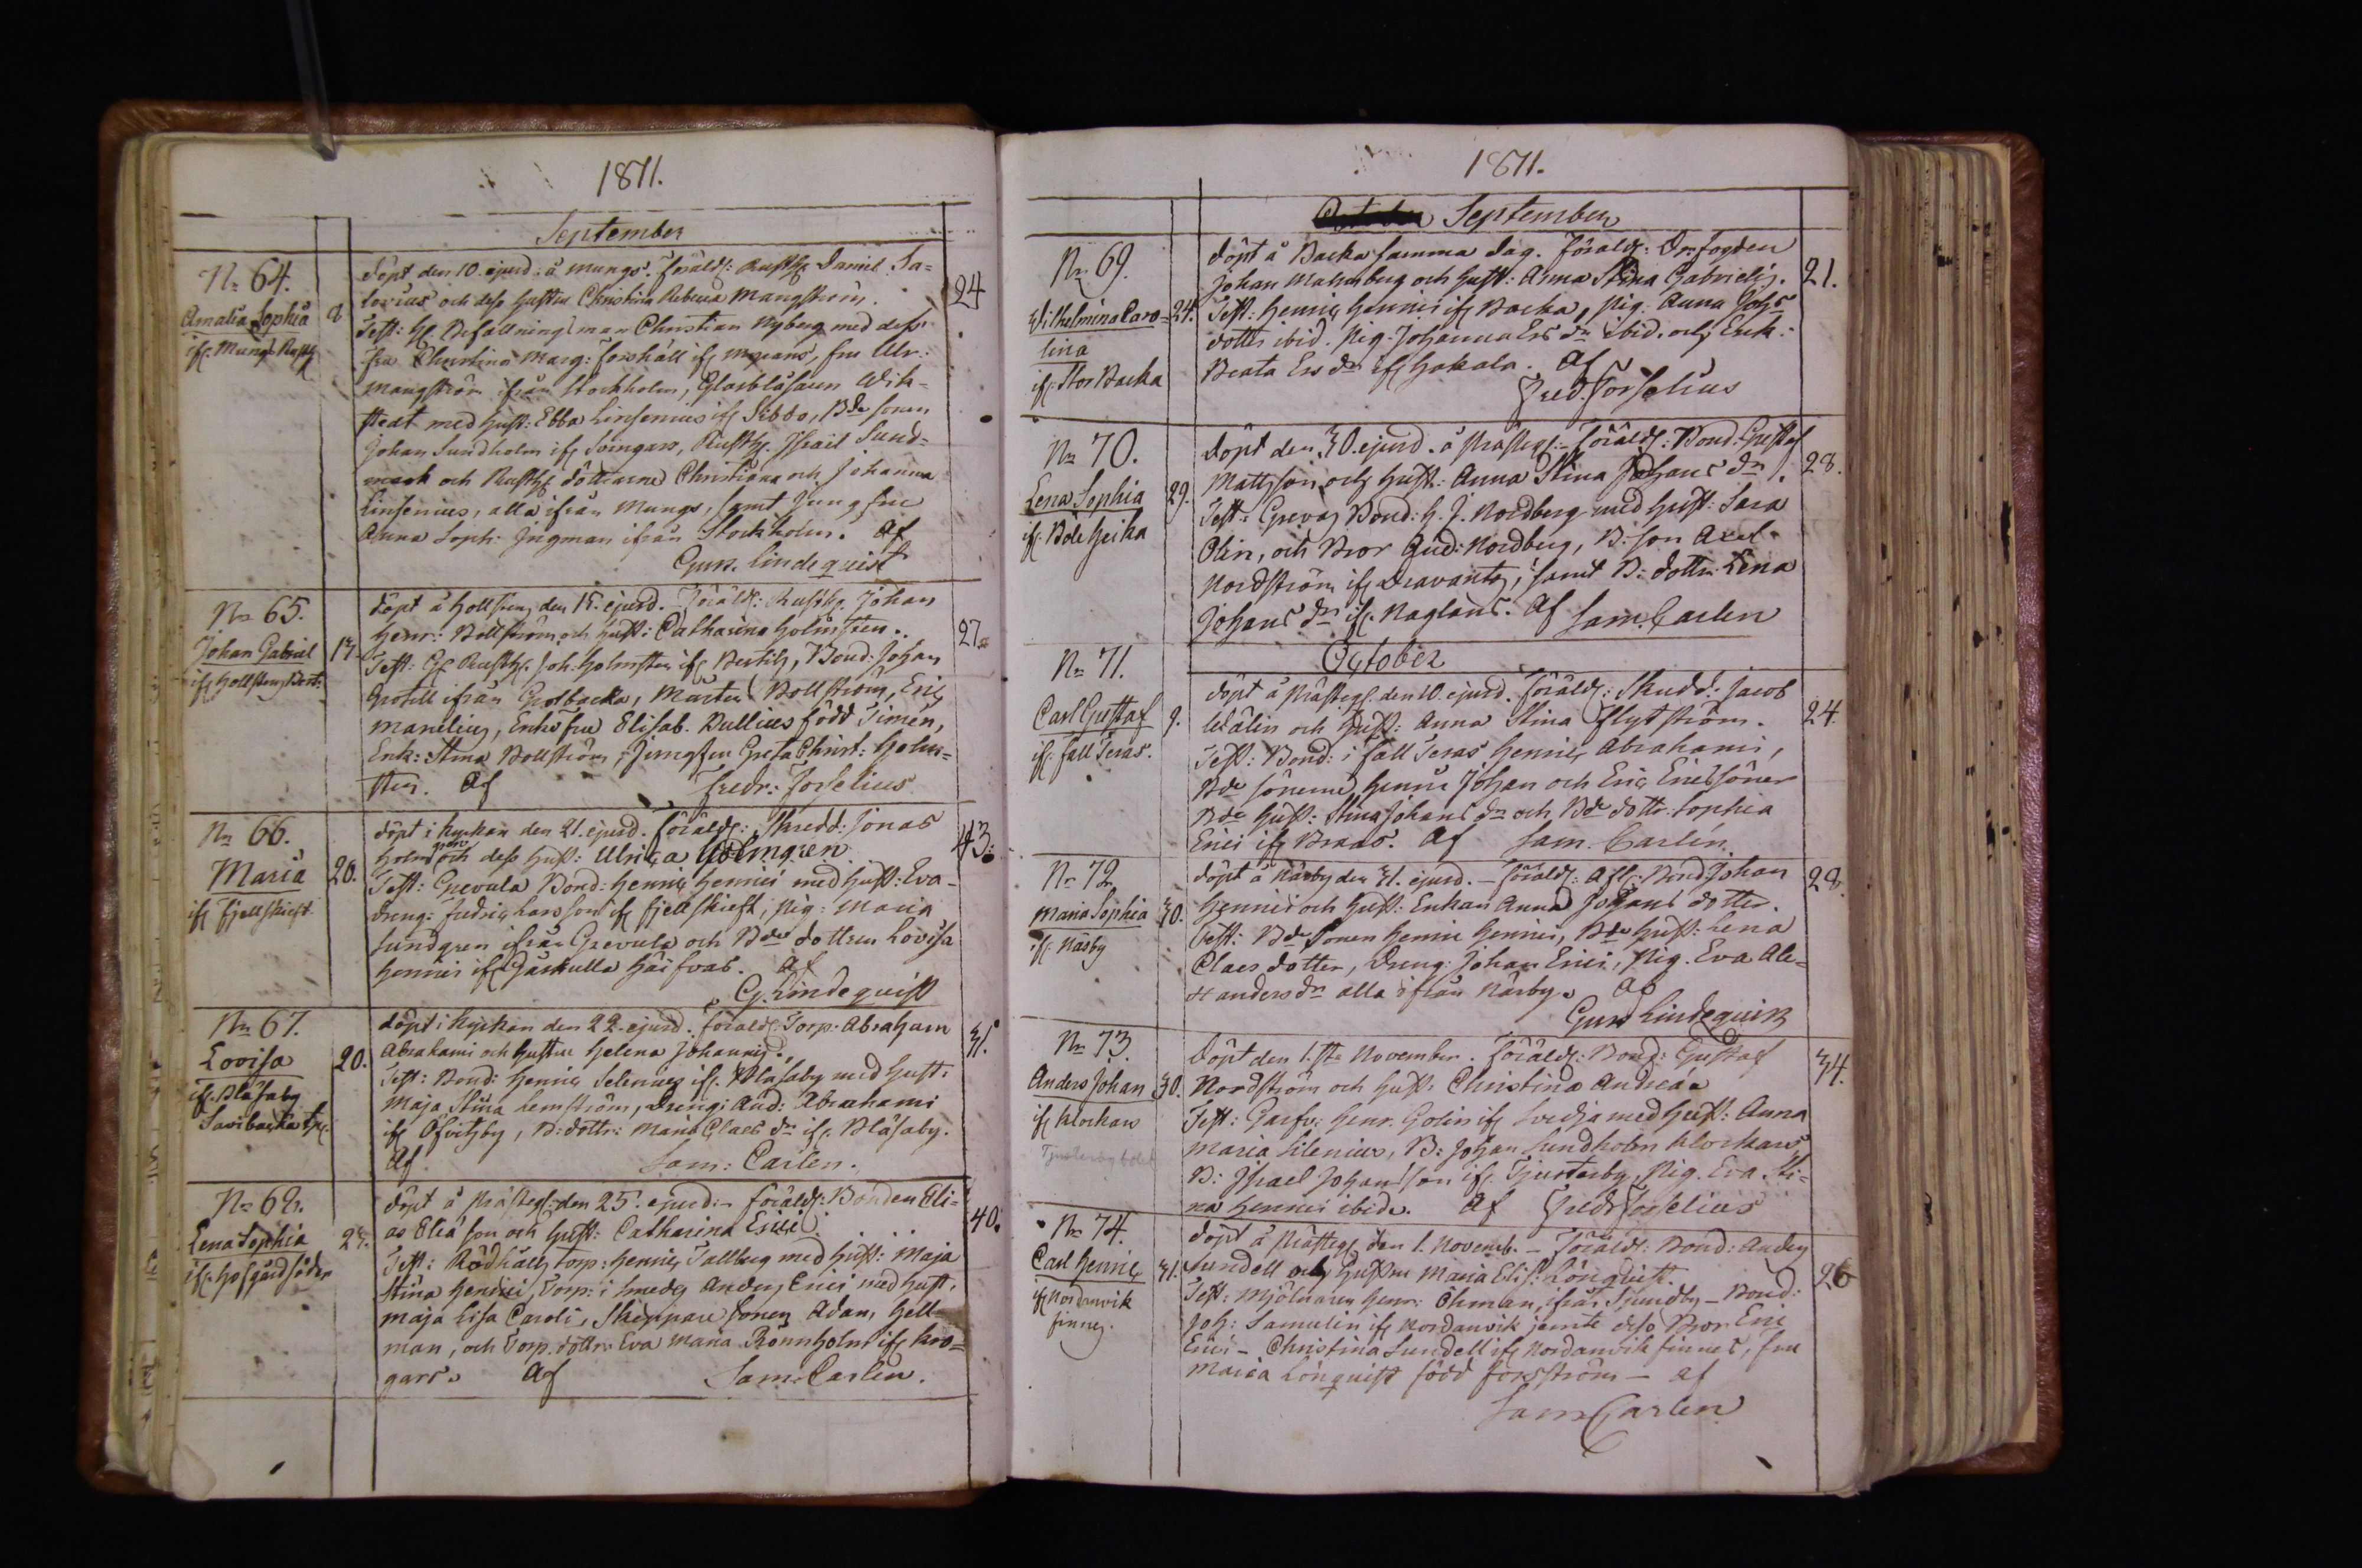 1811.
September
No 64.
Amalia Sophia
if. Mungs Rusth
8
döpt den 10. ejusd: å Mungs. föräldr: Rusth. Daniel Sa=
lovius och dess hustru Christina Rebecca Mangström.
Test: H. Befallningsman Christian Nyberg med dess
fru Christina Marg: Forshäll if, fru Ulr:
Mangström ifrån Stockholm, Glasblåsaren Wik=
stedt med hust: Ebba Linsenius if Sibbo, Bde sonen
Johan Sundholm if Svingars, Rusth. Israel Sund=
mark och Rusth döttrarne Christiana och Johanna
Linsenius, alla ifrån Mungs, samt Jungfru
Anna Soph: Ingman ifrån Stockholm. Af
Gust. Lindequist
24
No 65.
Johan Gabriel
if Hollstens Bert:
13.
döpt å Hollstens den 15. ejusd. Föräldr: Rusth. Johan
Henr: Bollström och hust: Catharina Holmsten.
Test: Rusth. Joh: Holmsten if Bertils, Bond: Johan
Grotell ifrån Grotbacka, Mårten Bollström, Eric
Manelius, Enkefru Elisab. Bullius född Timén,
Enk: Stina Bollström, Jungfru Greta Christ: Holm=
sten. Af Fredr: Forselius
27.
No 66.
Maria
if Fjellskift
20.
döpt i kyrkan den 21. ejusd. föräldr: Skredd: Jonas
Holmgren och dess hust: Ulrica Holmgren
Test: Grevula Bond: Henric Henrici med hust: Eva
dreng: Fredric Larsson if Fjellskift, Pig: Maria
Lundgren ifrån Grevula och Bde dottren Lovisa
Henrici if Gäskulla. Af
G. Lindequist
43.
No 67.
Lovisa
if. Blåsaby
Savibacka tp.
20.
döpt i kyrkan den 22. ejusd. föräldr: Torp: Abraham
Abrahami och hustru Helena Johannis d.
Test: Bond: Henric Selenius if. Blåsaby med hust:
Maja Stina Lemström, Dreng: And: Abrahami
if Ofvitzby, B: dottr: Maria Claes dr if. Blåsaby.
Af Sam: Carlen.
31.
No 68.
Lena Sophia
if. Hofgårdsöder
döpt å Prästeg: den 25. ejusd: föräldr: Bonden Eli=
as Eliason och hust: Catharina Erici d.
Test: Rödhäll torp: Henric Tallberg med hust: Maja
Stina Henrici, Torp: i Smeds Anders Erici med hust.
Maja Lisa Caroli, Skeppare sonen Adam Hell=
man, och Torp. dottr: Eva Maria Rönnholm if Kro=
gars. Af Sam: Carlen.
40.
1811.
September
No 69.
Wilhelmina Caro=
lina
if. Stor Backa
24.
döpt å Backa samma dag. Föräldr: Dr: fogden
Johan Malmberg och hust: Anna Stina Gabrielis d.
Test: Henric Henrici if Backa, Pig: Anna Johs
dotter ibid. Pig: Johanna Ers dr ibid. och Enk:
Beata Ers dr if Hakala. Af
Fred. Forselius
21.
No 70.
Lena Sophia
if. Böle Heika
29.
döpt den 30. ejusd. å Prästeg. Föräldr: Bond: Gustaf
Mattsson och hust: Anna Stina Johans dr.
Test: Grevas Bond: H. J. Nordberg med hust: Sara
Olin, och Bror And: Nordberg, B: son Axel
Nordström if Dravants, samt B: dottr: Lena
Johans dr if. Naglans. Af Sam. Carlen
28.
October
No 71.
Carl Gustaf
if. Fall Teras.
9.
döpt å Prästeg: den 10. ejusd. föräldr: Skredd: Jacob
Wålin och Hust: Anna Stina Flytström.
Test: Bond: i Fall Teras Henric Abrahami,
Bde sönerne Henric Johan och Eric Ericssöner
Bde Hust: Stina Johans dr och Bde dottr: Sophia
Erici if Braas. Af Sam. Carlén
24.
No 72.
Maria Sophia
if Näsby
30.
döpt å Näsby den 31. ejusd. – föräldr: Afl: Bond Johan
Henrici och Hust: Enkan Anna Johans dotter.
Test: Bde sonen Henric Henrici, Bde hust: Lena
Claes dotter, Dreng: Johan Erici, Pig. Eva Ale=
xanders dr alla ifrån Näsby. Af
Gust Lindequist
28.
No 73.
Anders Johan
if Klockars
Tjusterby bolet
30.
Döpt den 1.sta November. föräldr: Bond: Gustaf
Nordström och hust: Christina Andreæ
Test: Garfv: Henr. Golin if Svedja med hust: Anna
Maria Silenius, B: Johan Lundholm Klockars
B: Israel Johansson if Tjusterby, Pig. Eva Sti=
na Henrici ibid. Af Fredr Forselius
34.
No 74.
Carl Henric
if Nordanvik
finnes.
31.
döpt å Prästeg den 1. Novemb. – Föräldr: Bond: Anders
Sundell och hustru Maria Elis: Lönquist.
Test: Mjölnaren Henr: Öhman, ifrån Sjundby – Bond:
Joh: Samulin if Nordanvik jemte dess Bror Eric
Erici – Christina Sundell if Nordanvik finnes, fru
Maria Lönquist född Forsström – Af
Sam Carlen
26